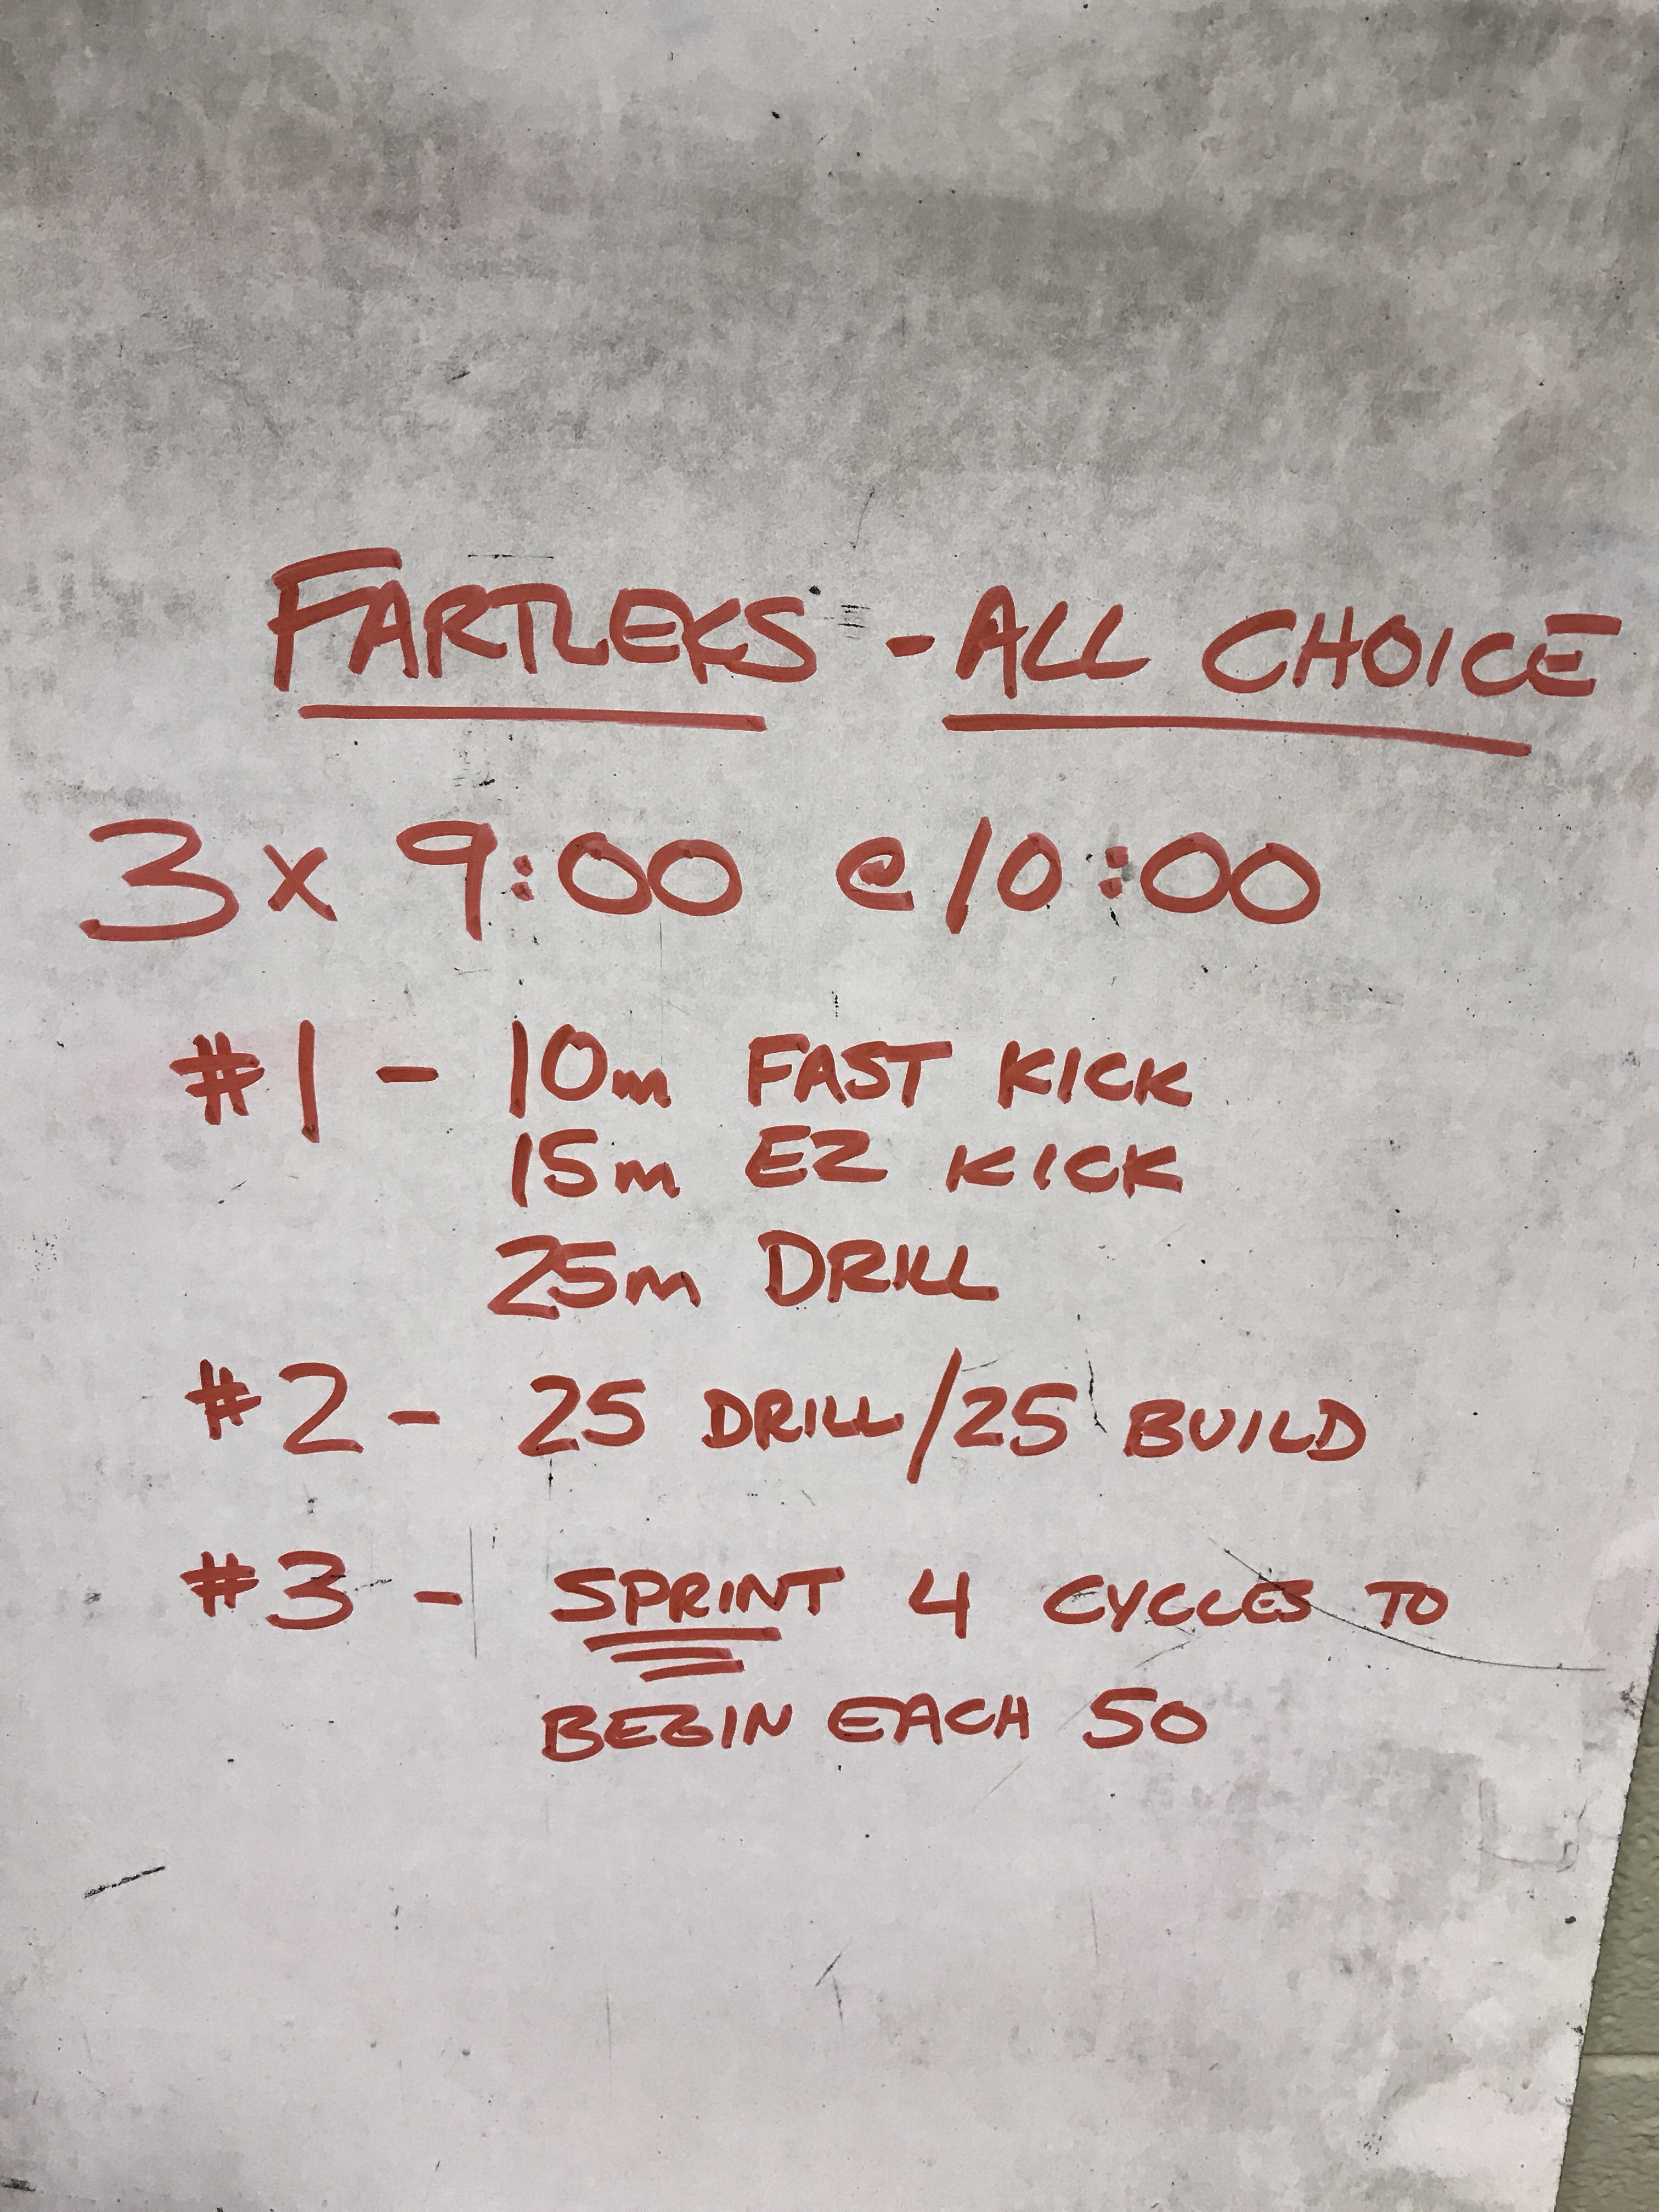 FARTLEKS - ALL CHOICE
3 x 9:00 @ 10:00
#1 - 10m FAST KICK
15m EZ KICK
25m DRILL
#2 - 25 DRILL/25 BUILD
#3 - SPRINT 4 CYCLES TO
BEGIN EACH 50